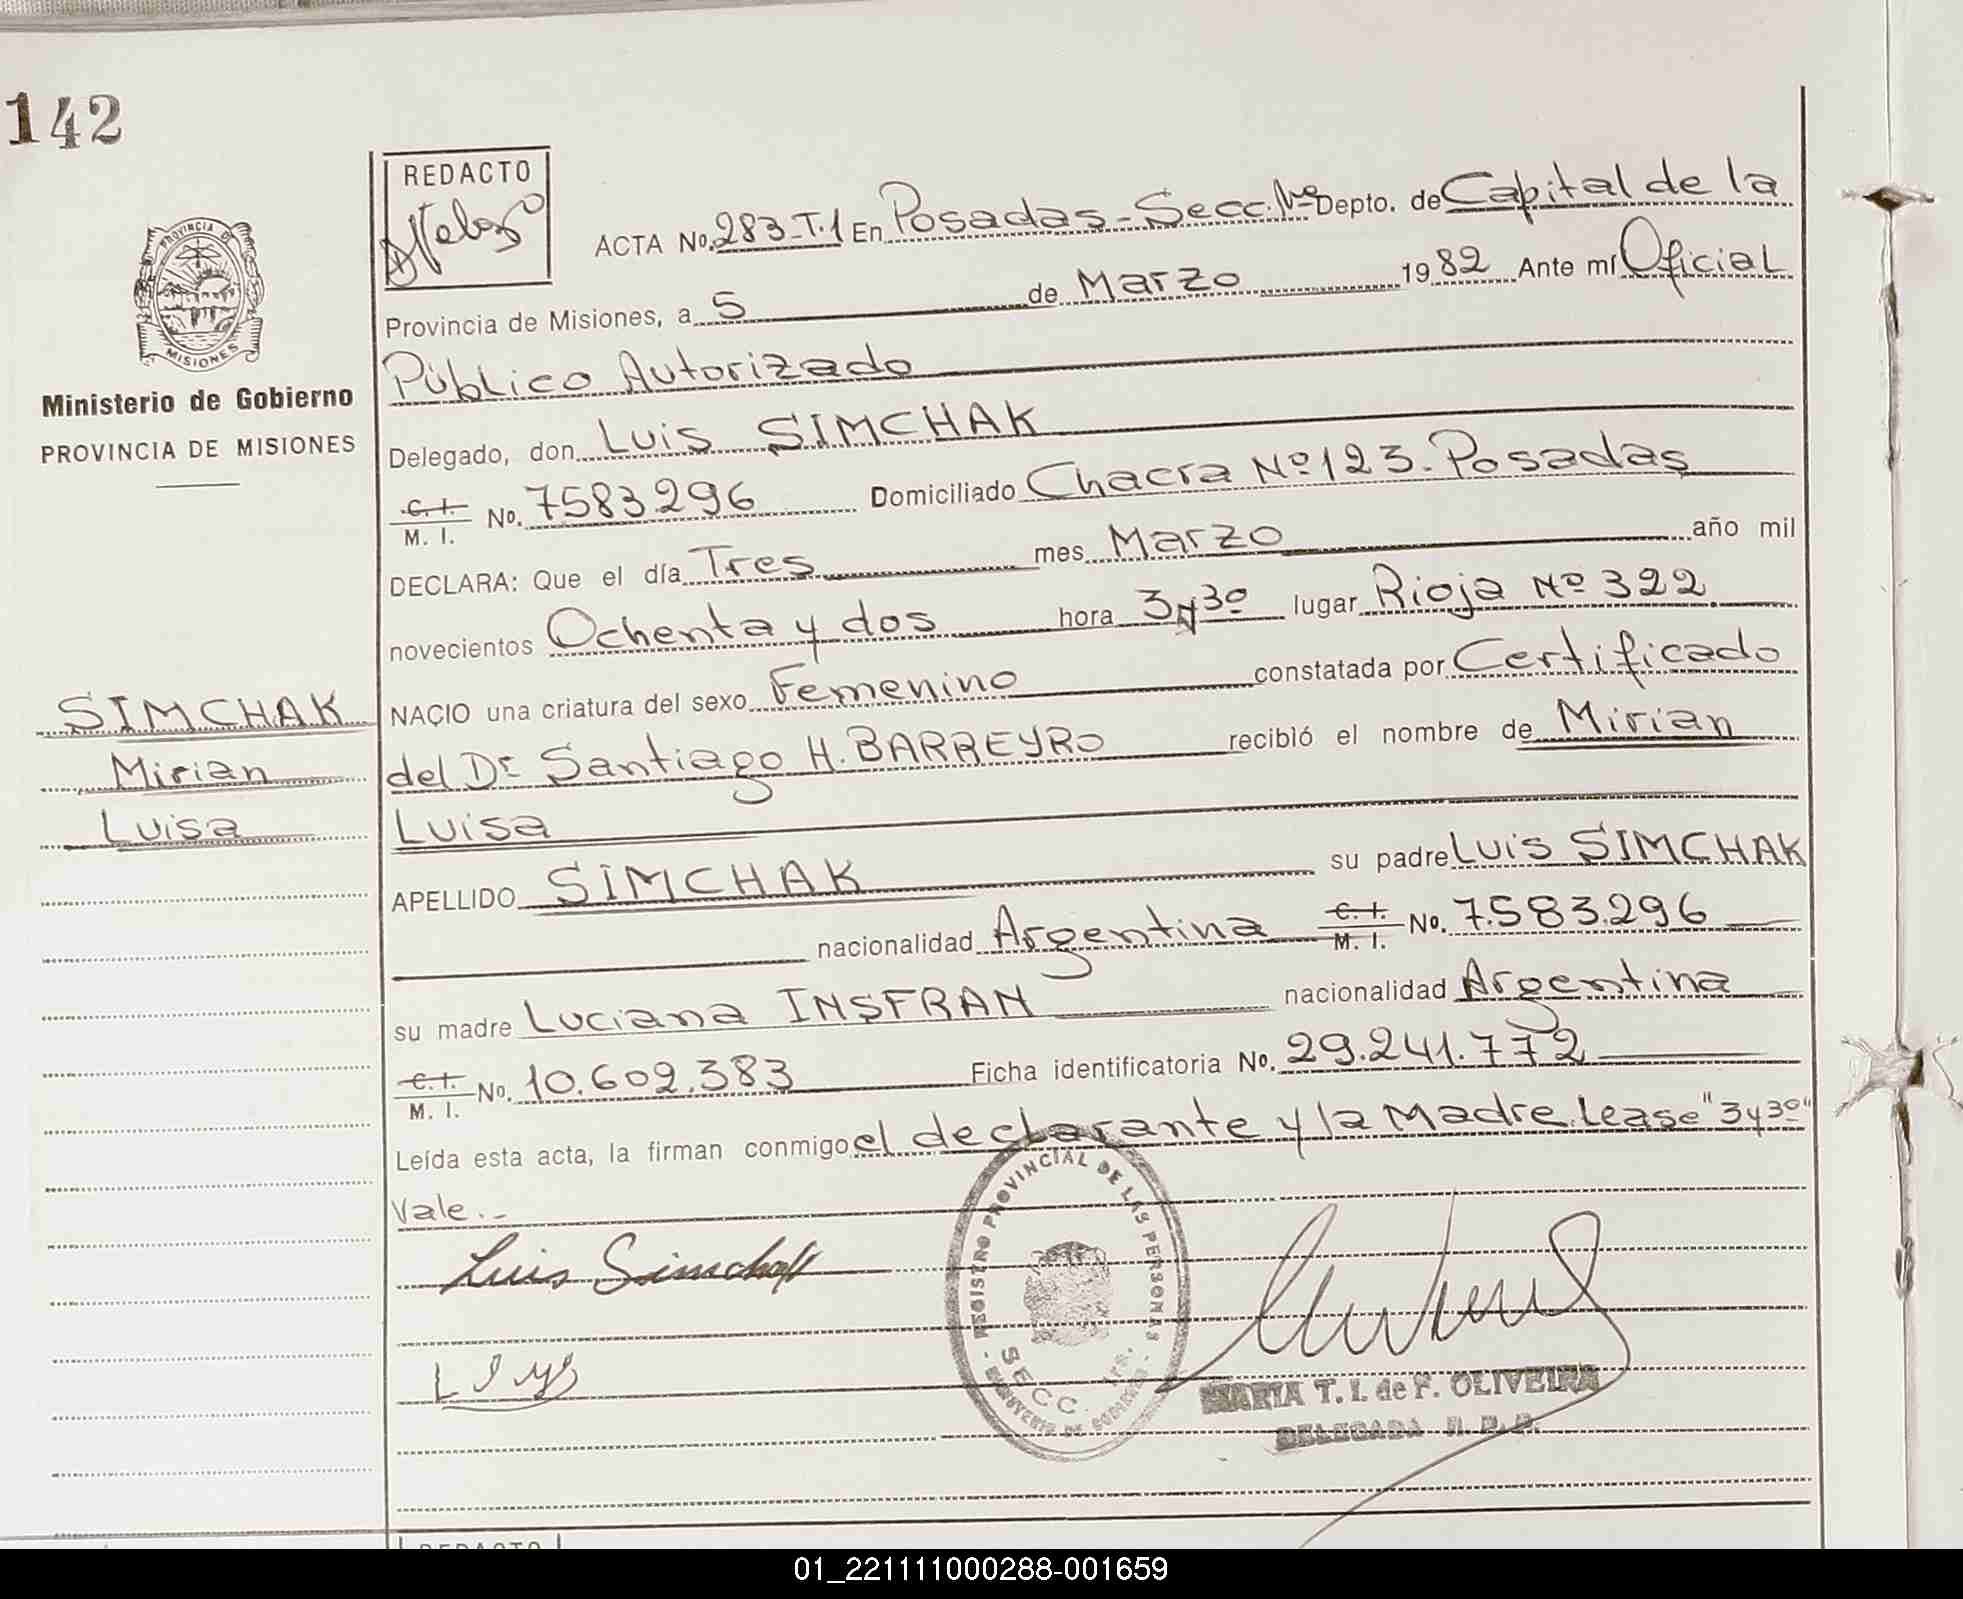 142
REDACTO
ACTA No. 283-T.1 En Posadas-Secc. 1ra Depto. de Capital de la
Provincia de Misiones, a 5 de Marzo 1982 Ante mí Oficial
Público Autorizado
Delegado, don Luis SIMCHAK
C. I. M. I. No. 7583296 Domiciliado Chacra Nº 123. Posadas
DECLARA: Que el día Tres mes Marzo año mil
novecientos Ochenta y dos hora 3y30 lugar Rioja Nº 322
NACIO una criatura del sexo Femenino constatada por Certificado
del Dr Santiago H. BARREYRO recibió el nombre de Mirian
Luisa
APELLIDO SIMCHAK su padre Luis SIMCHAK
nacionalidad Argentina C. I. M. I. No. 7.583.296
su madre Luciana INSFRAN nacionalidad Argentina
C. I. M. I. No. 10.602.383 Ficha identificatoria No. 29.241.772
Leída esta acta, la firman conmigo el declarante y la Madre. Lease "3y30"
Vale.-
Luis Simchak
REGISTRO PROVINCIAL DE LAS PERSONAS
SECC.
MINISTERIO DE GOBIERNO
MARIA T. I. de F. OLIVEIRA
DELEGADA R. P. P.
PROVINCIA DE
MISIONES
Ministerio de Gobierno
PROVINCIA DE MISIONES
SIMCHAK
Mirian
Luisa
REDACTO
01_221111000288-001659